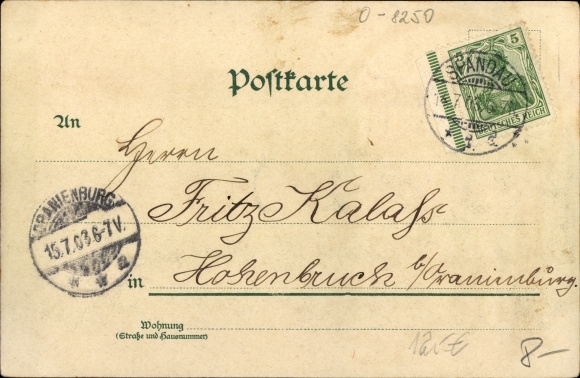 O-8250
5
SPANDAU
DEUTSCHES REICH
Postkarte
An
Herrn
Fritz Kalass
ORANIENBURG
15.7.03.6-7V.
in Hohenbruch b/Oranienburg.
Wohnung
(Straße und Hausnummer)
8-